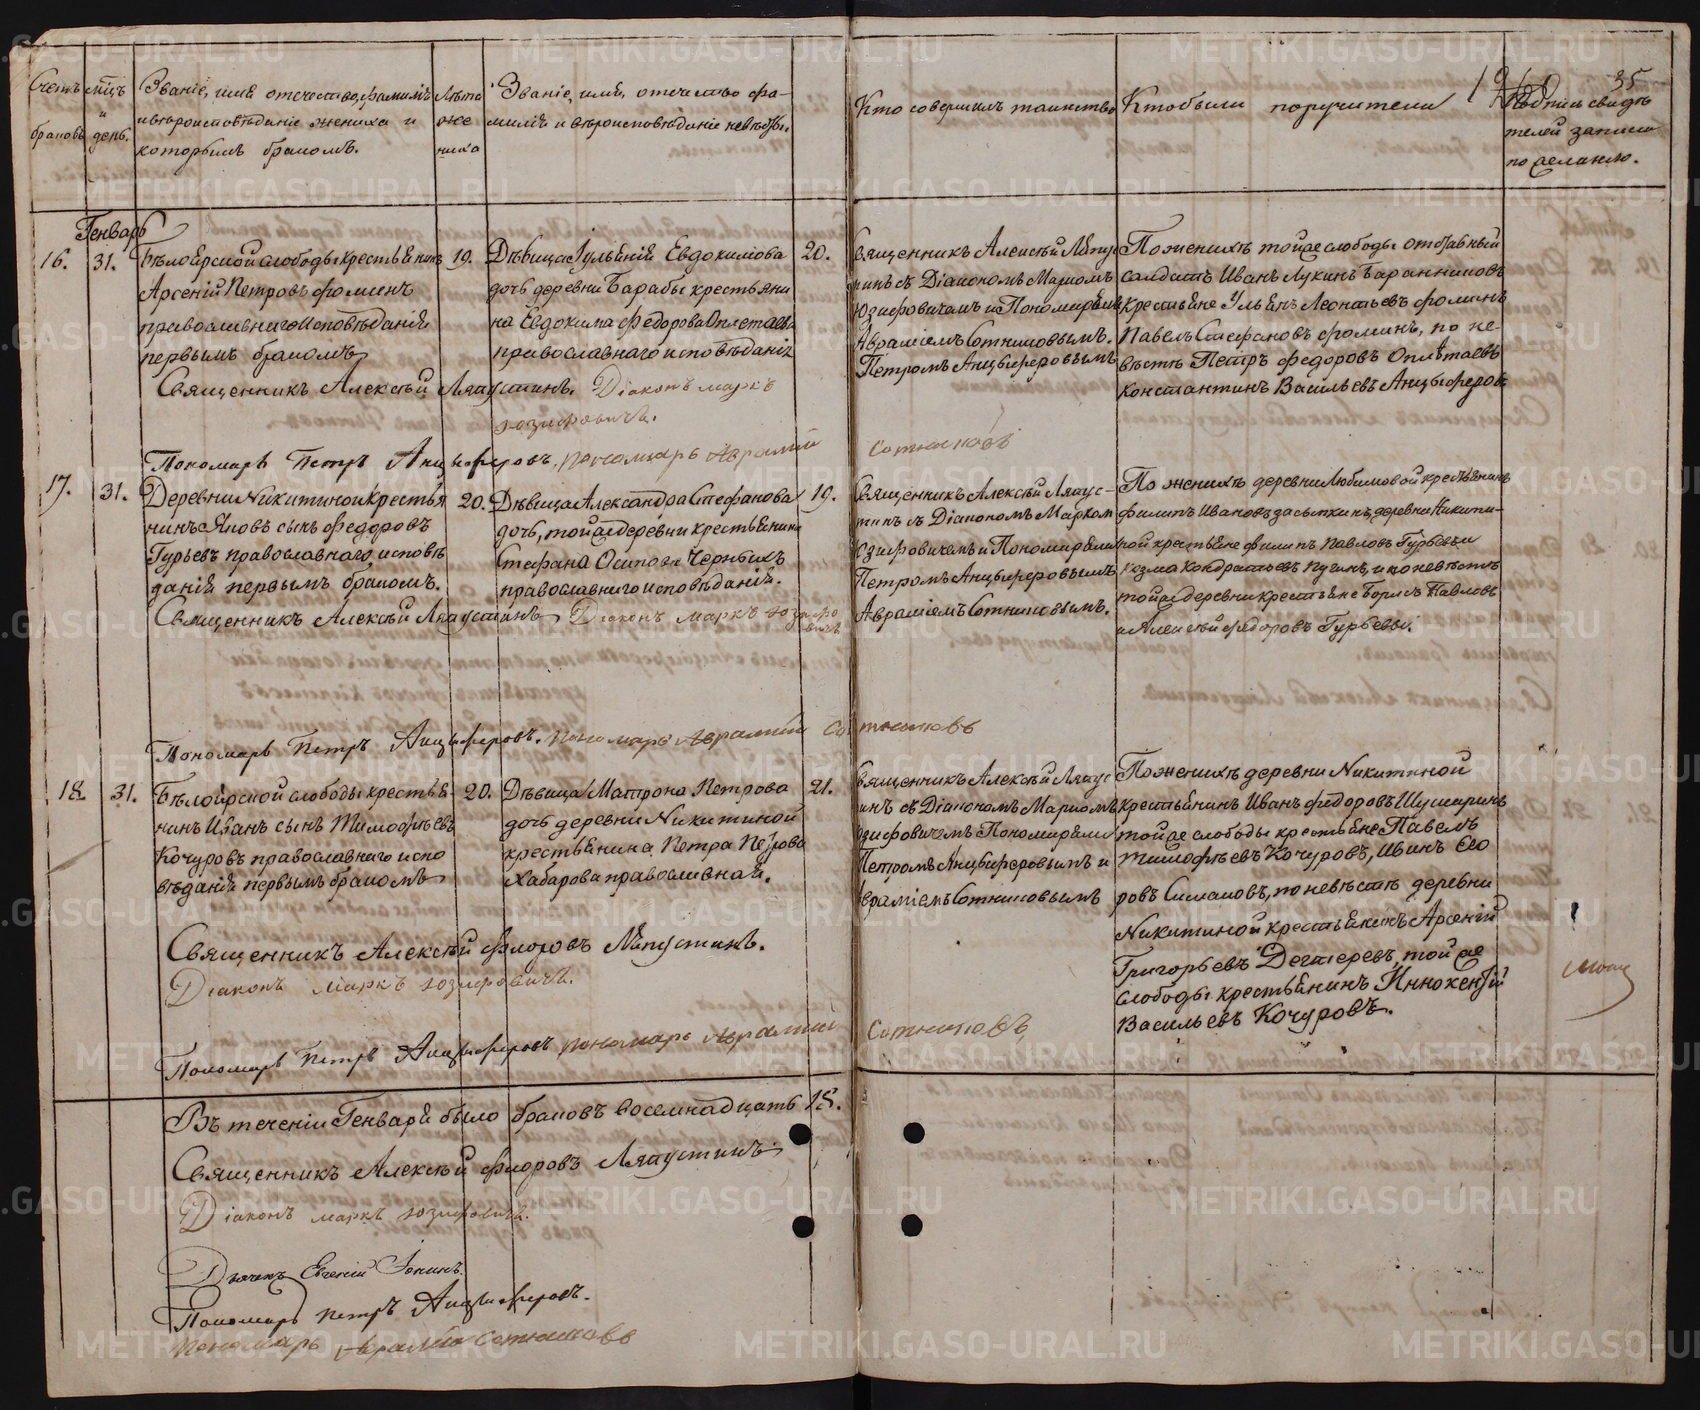 Счетъ браковъ
мѣцъ и день.
Званіе, имя отечество, фамилія
и вѣроисповѣданіе жениха и
которымъ бракомъ.
Лѣта
же
ниха
Званіе, имя, отечество фа-
милія и вѣроисповѣданіе невѣсты
Кто совершилъ таинство
Кто были поручители
35
Подписи свидѣ
телей записи
по желанію.
Генварь
16. 31.
Бѣлоярской слободы крестьянинъ
Арсеній Петровъ Фоминъ
православнаго исповѣданія
первымъ бракомъ
19.
Дѣвица Іуліянія Евдокимова
дочь деревни Барабы крестьяни
на Евдокима Федорова Оплетаева
православнаго исповѣданія
20.
Священникъ Алексѣй Ляпус
тинъ съ Діакономъ Маркомъ
Юзифовичемъ и Пономарями
Авраміемъ Сотниковымъ.
Петромъ Анцыферовымъ
По женихѣ тойже слободы отставный
салдатъ Иванъ Лукинъ Баранниковъ
крестьяне Ульянъ Леонтьевъ Фоминъ
Павелъ Стефановъ Фоминъ, по не-
вѣстѣ Петръ Федоровъ Оплѣтаевъ
Константинъ Васильевъ Анцыферовъ
Священникъ Алексѣй Ляпустинъ. Діаконъ маркъ
юзифовичъ.
Пономарь Петръ Анцыферовъ. пономарь Аврамий Сотниковъ
17. 31.
Деревни Никитиной крестья
нинъ
сынъ Федоровъ
Гурьевъ православнаго исповѣ
данія первымъ бракомъ.
20.
Дѣвица Александра Стефанова
дочь, тойже деревни крестьянина
Стефана Осипова Черныхъ
православнаго исповѣданія.
19.
Священникъ Алексѣй Ляпус-
тинъ съ Діакономъ Маркомъ
Юзифовичемъ и Пономарями
Петромъ Анцыферовымъ
Авраміемъ Сотниковымъ.
По женихѣ деревни Любимовой крестьянинъ
Филипъ Ивановъ Засыпкинъ, деревни Никити-
ной крестьяне Филипъ Павловъ Гурьевъ и
Козма Кондратьевъ Пугинъ, и по невѣстѣ
тойже деревни крестьяне Борисъ Павловъ
и Алексѣй Федоровъ Гурьевы.
Священникъ Алексѣй Ляпустинъ Діаконъ маркъ юзифо
вичъ
Пономарь Петръ Анцыферовъ. пономарь Аврамий Сотниковъ
18. 31.
Бѣлоярской слободы крестья
нинъ Иванъ сынъ Тимофѣевъ
Кочуровъ православнаго испо
вѣданія первымъ бракомъ
20.
Дѣвица Матрона Петрова
дочь деревни Никитиной
крестьянина Петра Петрова
Хабарова православной.
21.
Священникъ Алексѣй Ляпус
тинъ съ Діакономъ Маркомъ
Юзифовичемъ Пономарями
Петромъ Анцыферовымъ и
Авраміемъ Сотниковымъ
По женихѣ деревни Никитиной
крестьянинъ Иванъ Федоровъ Шушаринъ
тойже слободы крестьяне Павелъ
Тимофѣевъ Кочуровъ, Иванъ Его
ровъ Симаковъ, по невѣстѣ деревни
Никитиной крестьянинъ Арсеній
Григорьевъ Дегтеревъ, тойже
слободы крестьянинъ Иннокентій
Васильевъ Кочуровъ.
Священникъ Алексѣй Флоровъ Ляпустинъ.
Діаконъ маркъ юзифовичъ.
Пономарь Петръ Анцыферовъ пономарь Аврамий Сотниковъ
Въ теченіи Генваря было браковъ восемнадцать 18.
Священникъ Алексѣй Флоровъ Ляпустинъ
Діаконъ маркъ юзифовичъ.
Дьячекъ Евгеній Іонинъ.
Пономарь Петръ Анцыферовъ.
Пономарь Аврамій Сотниковъ
METRIKI.GASO-URAL.RU